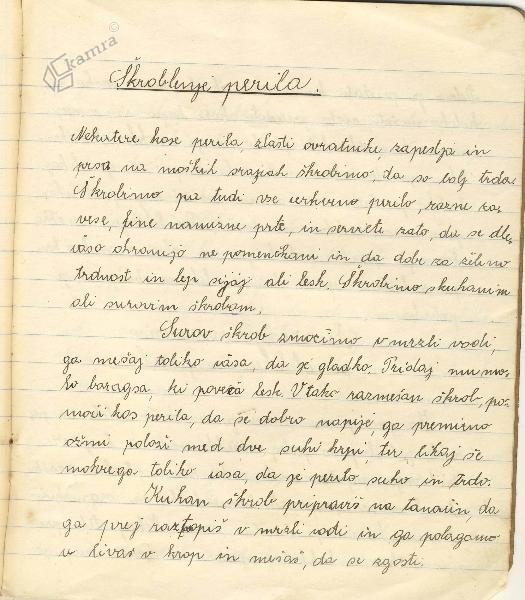 kamra ©
Škroblenje perila.
Nekatere kose perila, zlasti ovratnike, zapestja in
prsa na moških srajcah škrobimo, da so bolj trda.
Škrobimo pa tudi vse cerkveno perilo, razne za-
vese, fine namizne prte, in serviete zato, da se dlje
časa ohranijo ne pomečkani in da dobe za želeno
trdnost in lep sijaj ali lesk. Škrobimo s kuhanim
ali surovim škrobom.
Surov škrob zmočimo v mrzli vodi,
ga mešaj toliko časa, da je gladko. Pridaj mu ma-
lo boraksa, ki poveča lesk. V tako razmešan škrob, po-
moči kos perila, da se dobro napije ga premerno
ožmi položi med dve suhi krpi, ter, likaj še
mokrega toliko časa, da je perilo suho in trdo.
Kuhan škrob pripraviš na ta način, da
ga prej raztopiš v mrzli vodi in ga polagamo
v livaš v krop in mešaš, da se zgosti.